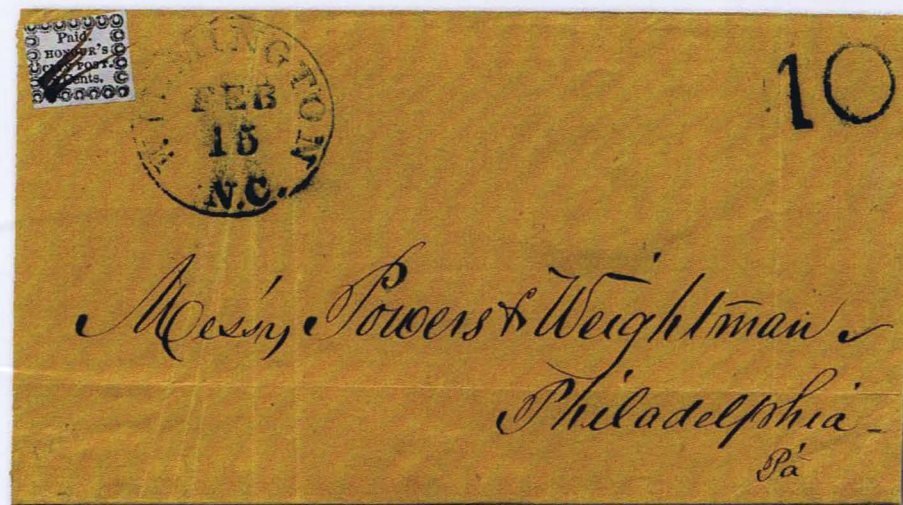 Paid.
HONOUR'S
CITY POST.
Cents.
WILMINGTON
FEB
15
N.C.
10
Messrs Powers & Weightman
Philadelphia
Pa